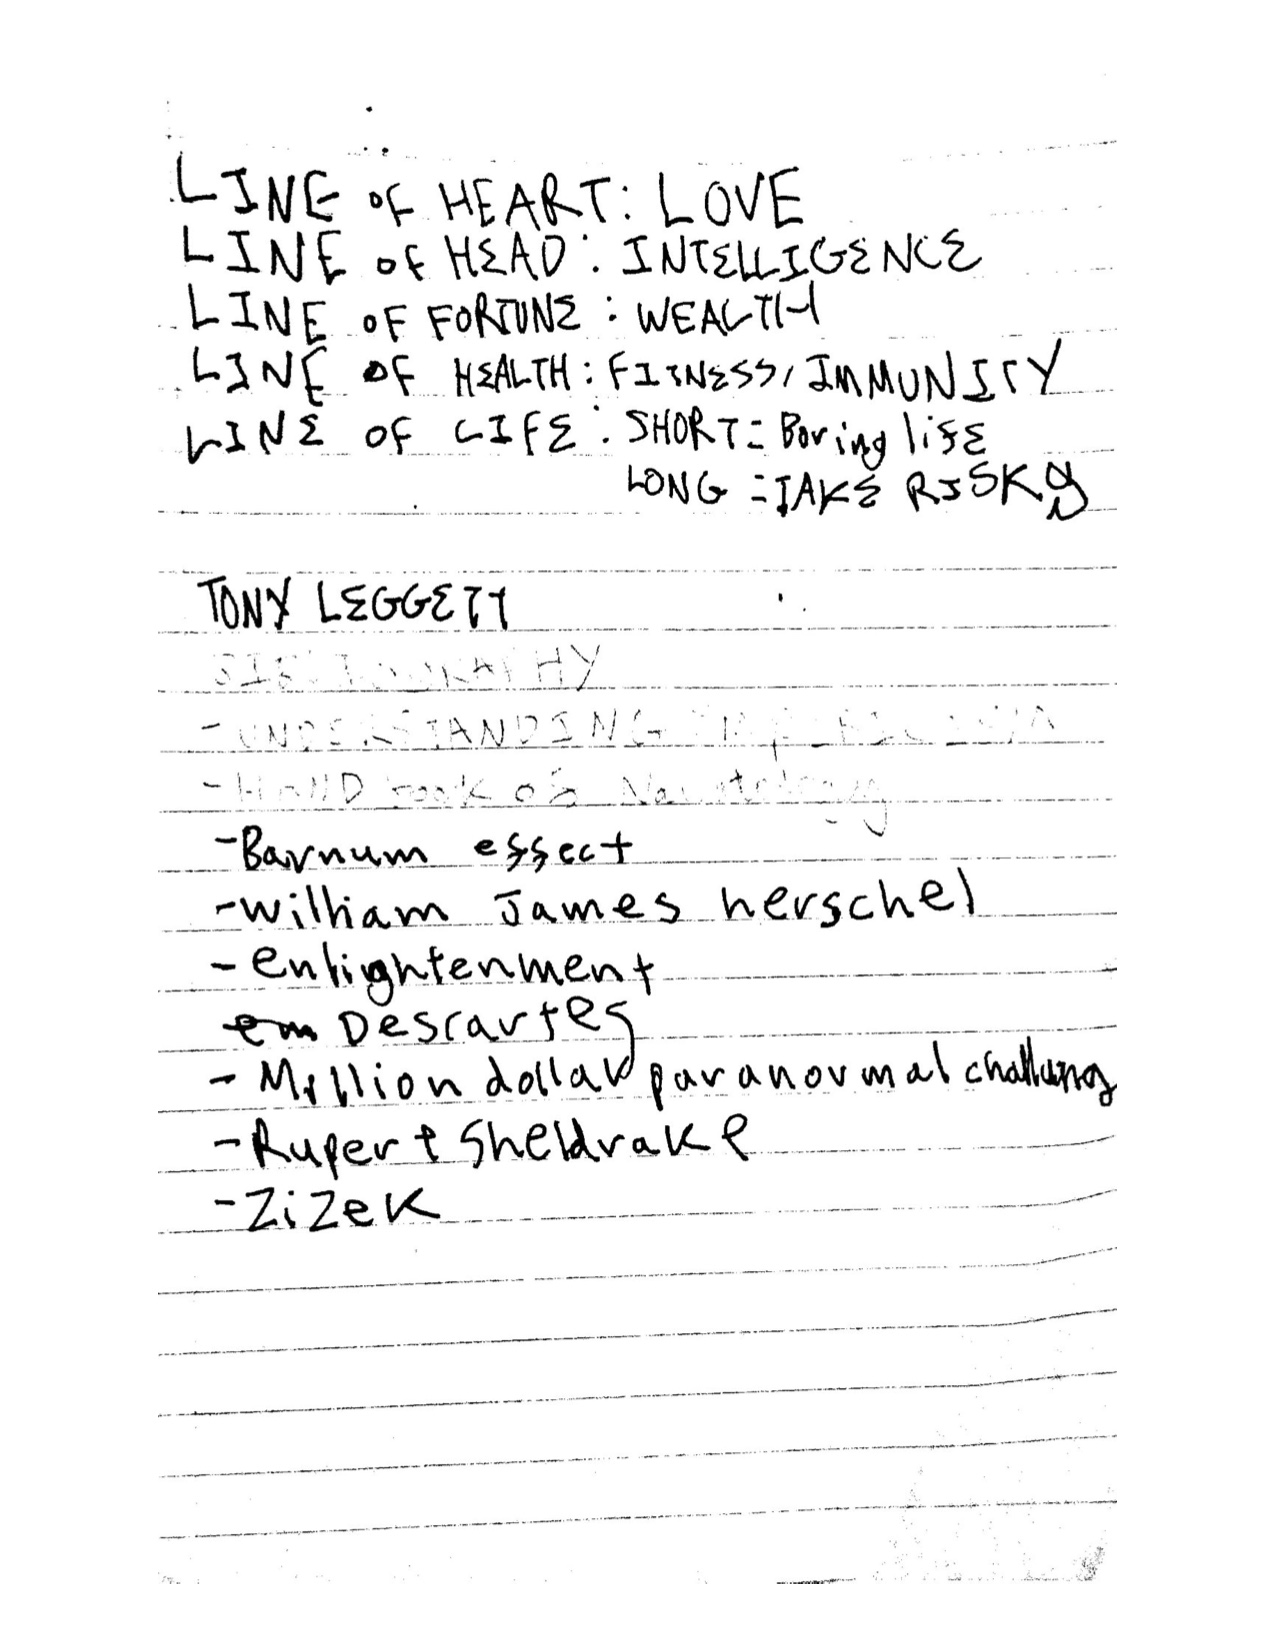 LINE OF HEART: LOVE
LINE OF HEAD: INTELLIGENCE
LINE OF FORTUNE: WEALTH
LINE OF HEALTH: FITNESS, IMMUNITY
LINE OF LIFE: SHORT= Boring life
LONG = TAKE RISKS
TONY LEGGETT
- UNDERSTANDING
- HAND book of
- Barnum effect
- william James herschel
- enlightenment
em Descartes
- Million dollar paranormal challeng
- Rupert Sheldrake
- Zizek